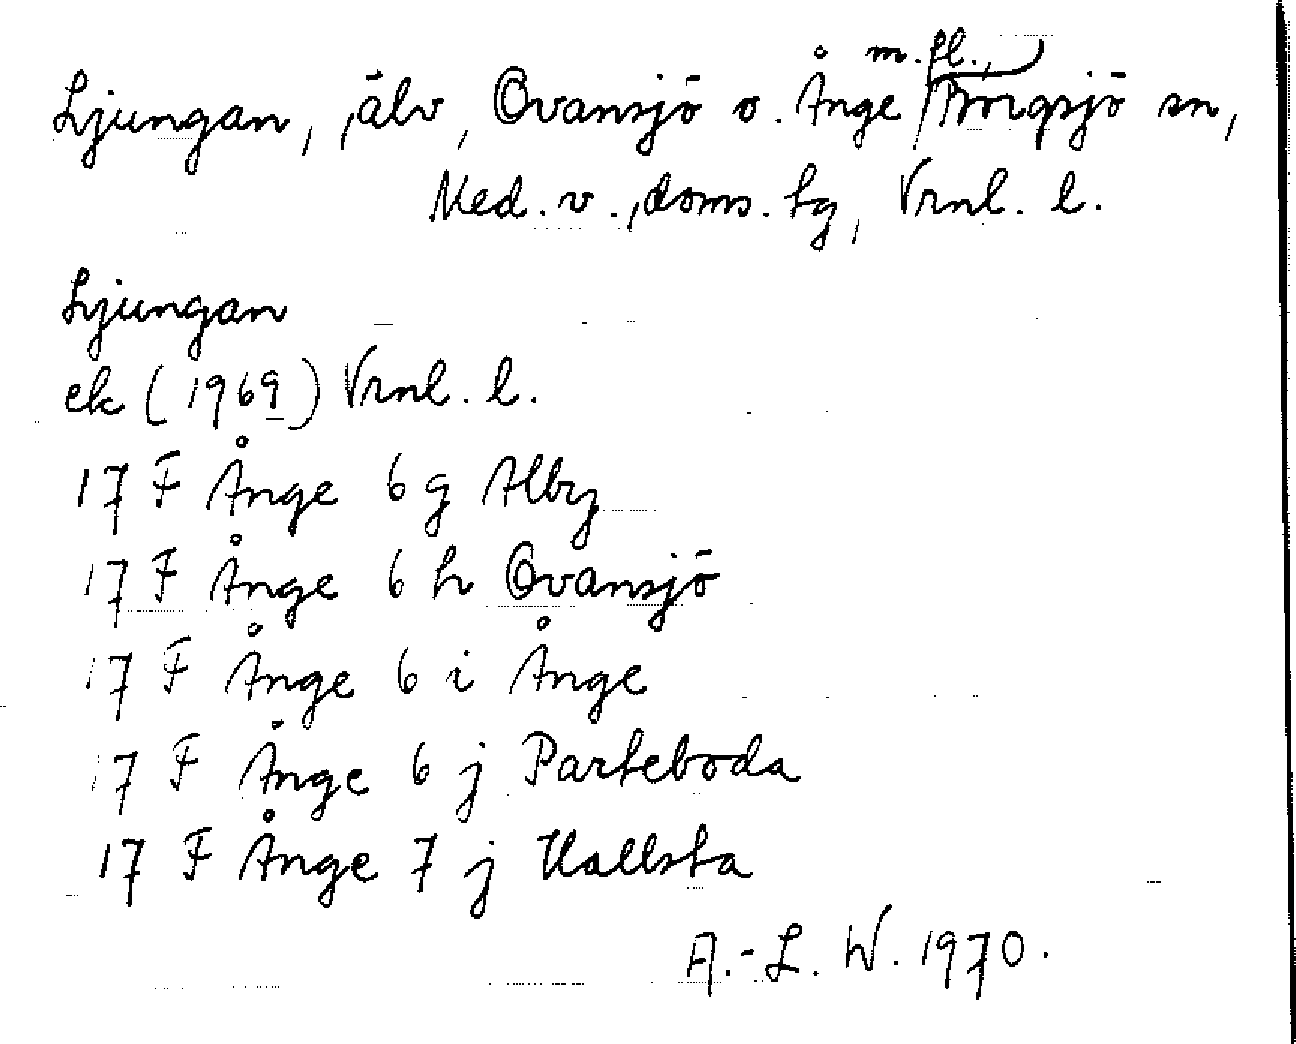 Ljungan, älv, Ovansjö o. Ånge m.fl., Borgsjö sn,
Med. v., doms. tg, Vrnl. l.
Ljungan
ek (1969) Vrnl. l.
17 F Ånge 6 g Alby
17 F Ånge 6 h Ovansjö
17 F Ånge 6 i Ånge
17 F Ånge 6 j Parteboda
17 F Ånge 7 j Hallsta
A.-L. W. 1970.